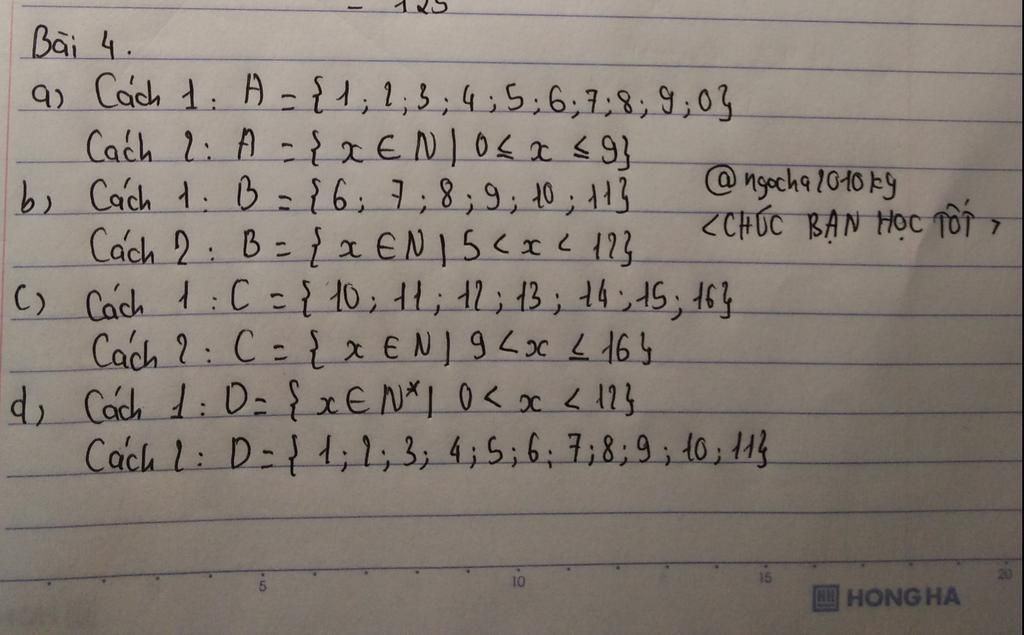 = 125
Bài 4.
a) Cách 1: A = {1; 2; 3; 4; 5; 6; 7; 8; 9; 0}
Cách 2: A = { x ∈ N | 0 ≤ x ≤ 9}
b) Cách 1: B = {6; 7; 8; 9; 10; 11}
@ngocha2010kg
Cách 2: B = { x ∈ N | 5 < x < 12}
<CHÚC BẠN HỌC TỐT>
c) Cách 1: C = { 10; 11; 12; 13; 14; 15; 16}
Cách 2: C = { x ∈ N | 9 < x ≤ 16}
d) Cách 1: D = { x ∈ N* | 0 < x < 12}
Cách 2: D = { 1; 2; 3; 4; 5; 6; 7; 8; 9; 10; 11}
5 10 15 20
HH HONG HA